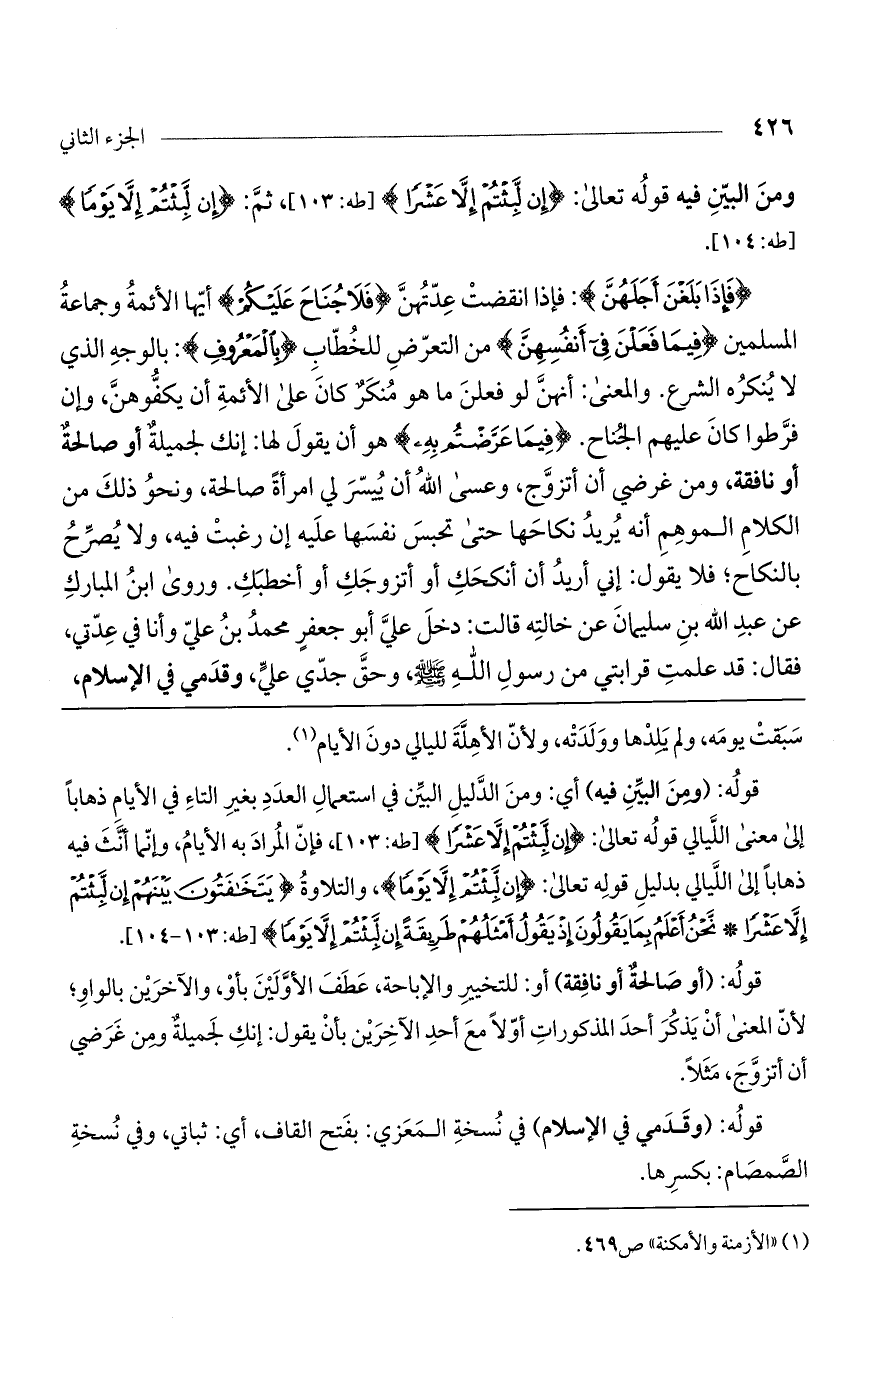 ٤٢٦ الجزء الثاني
ومنَ البيّنِ فيه قولُه تعالىٰ: ﴿إِن لَّبِثْتُمْ إِلَّا عَشْرًا﴾ [طه: ١٠٣]، ثمَّ: ﴿إِن لَّبِثْتُمْ إِلَّا يَوْمًا﴾
[طه: ١٠٤].
﴿فَإِذَا بَلَغْنَ أَجَلَهُنَّ﴾: فإذا انقضتْ عِدّتهُنَّ ﴿فَلَا جُنَاحَ عَلَيْكُمْ﴾ أيّها الأئمةُ وجماعةُ
المسلمين ﴿فِيمَا فَعَلْنَ فِىٓ أَنفُسِهِنَّ﴾ من التعرّضِ للخُطّابِ ﴿بِالْمَعْرُوفِ﴾: بالوجهِ الذي
لا يُنكرُه الشرع. والمعنىٰ: أنهنَّ لو فعلنَ ما هو مُنكَرٌ كانَ علىٰ الأئمةِ أن يكفُّوهنَّ، وإن
فرَّطوا كانَ عليهم الجُناح. ﴿فِيمَا عَرَّضْتُم بِهِۦ﴾ هو أن يقولَ لها: إنك لجميلةٌ أو صالحةٌ
أو نافقة، ومن غرضي أن أتزوَّج، وعسىٰ اللهُ أن يُيسّرَ لي امرأةً صالحة، ونحوُ ذلكَ من
الكلامِ الموهِمِ أنه يُريدُ نكاحَها حتىٰ تحبسَ نفسَها علَيه إن رغبتْ فيه، ولا يُصرِّحُ
بالنكاح؛ فلا يقول: إني أريدُ أن أنكحَكِ أو أتزوجَكِ أو أخطبَكِ. وروىٰ ابنُ المباركِ
عن عبدِ الله بنِ سليمانَ عن خالتِه قالت: دخلَ عليَّ أبو جعفرٍ محمدُ بنُ عليّ وأنا في عِدّتي،
فقال: قد علمتِ قرابتي من رسولِ اللهِ ﷺ، وحقَّ جدّي عليٍّ، وقدَمي في الإسلام،
سَبَقتْ يومَه، ولم يَلِدْها ووَلَدَتْه، ولأنّ الأهِلَّةَ لليالي دونَ الأيام(١).
قولُه: (ومِنَ البيِّنِ فيه) أي: ومنَ الدَّليلِ البيِّن في استعمالِ العدَدِ بغيرِ التاءِ في الأيامِ ذهاباً
إلىٰ معنىٰ اللَّيالي قولُه تعالىٰ: ﴿إِن لَّبِثْتُمْ إِلَّا عَشْرًا﴾ [طه: ١٠٣]، فإنّ المُرادَ به الأيامُ، وإنّما أنَّثَ فيه
ذهاباً إلىٰ اللَّيالي بدليلِ قولِه تعالىٰ: ﴿إِن لَّبِثْتُمْ إِلَّا يَوْمًا﴾، والتلاوةُ ﴿يَتَخَٰفَتُونَ بَيْنَهُمْ إِن لَّبِثْتُمْ
إِلَّا عَشْرًا * نَّحْنُ أَعْلَمُ بِمَا يَقُولُونَ إِذْ يَقُولُ أَمْثَلُهُمْ طَرِيقَةً إِن لَّبِثْتُمْ إِلَّا يَوْمًا﴾ [طه: ١٠٣-١٠٤].
قولُه: (أو صَالحةٌ أو نافِقة) أو: للتخييرِ والإباحة، عَطَفَ الأوَّلَيْنَ بأوْ، والآخَرَيْنِ بالواوِ؛
لأنّ المعنىٰ أنْ يَذكُرَ أحدَ المذكوراتِ أوّلاً معَ أحدِ الآخِرَيْن بأنْ يقول: إنكِ لَجميلةٌ ومِن غَرَضي
أن أتزوَّجَ، مَثَلاً.
قولُه: (وقَدَمي في الإسلام) في نُسخةِ المَعَزي: بفَتح القاف، أي: ثباتي، وفي نُسخةِ
الصَّمصَام: بكسرِها.
(١) «الأزمنة والأمكنة» ص٤٦٩.